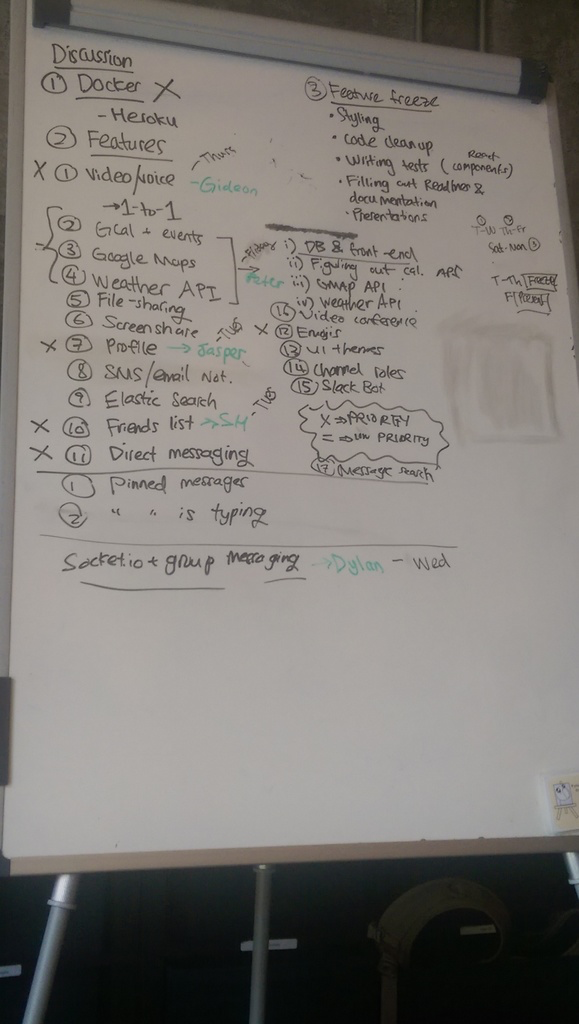 Discussion
① Docker X
- Heroku
② Features
X ① Video/voice - Gideon
Thurs
→ 1-to-1
② GCal + events
③ Google Maps
④ Weather API
⑤ File-sharing
⑥ Screenshare
X ⑦ Profile → Jasper
Tues
⑧ SMS/email Not.
⑨ Elastic Search
X ⑩ Friends list → SH
Tues
X ⑪ Direct messaging
① Pinned messages
② " " is typing
Socket.io + group messaging → Dylan - Wed
③ Feature freeze
• Styling
• Code clean up
• Writing tests (React components)
• Filling out Readmes &
documentation
• Presentations
Peter
i) DB & front-end
ii) Figuring out cal. API
iii) GMAP API
iv) Weather API
⑯ Video conference
X ⑫ Emojis
⑬ UI themes
⑭ Channel roles
⑮ Slack Bot
X ⇒ PRIORITY
= ⇒ un PRIORITY
⑰ Message search
T-W Th-Fr
Sat-Mon ③
T-Th Freeze
F Present